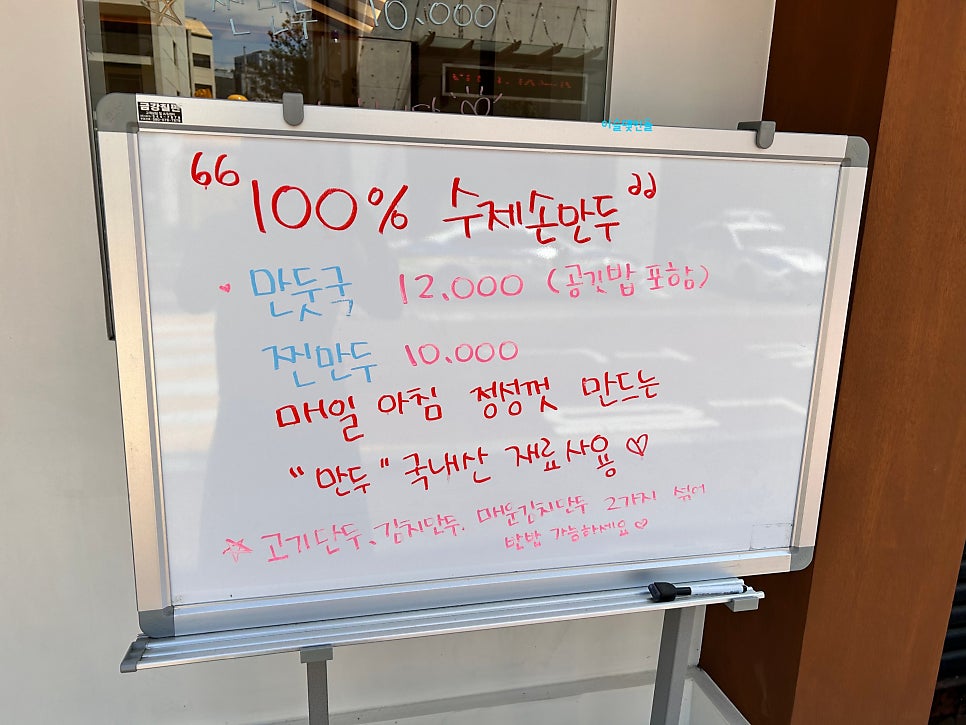 10.000
금강칠판
이슬맺힌들
“100% 수제손만두”
♥ 만둣국 12.000 (공깃밥 포함)
찐만두 10.000
매일 아침 정성껏 만드는
“만두” 국내산 재료사용♡
☆ 고기만두, 김치만두, 매운김치만두 2가지 섞어
반반 가능하세요♡